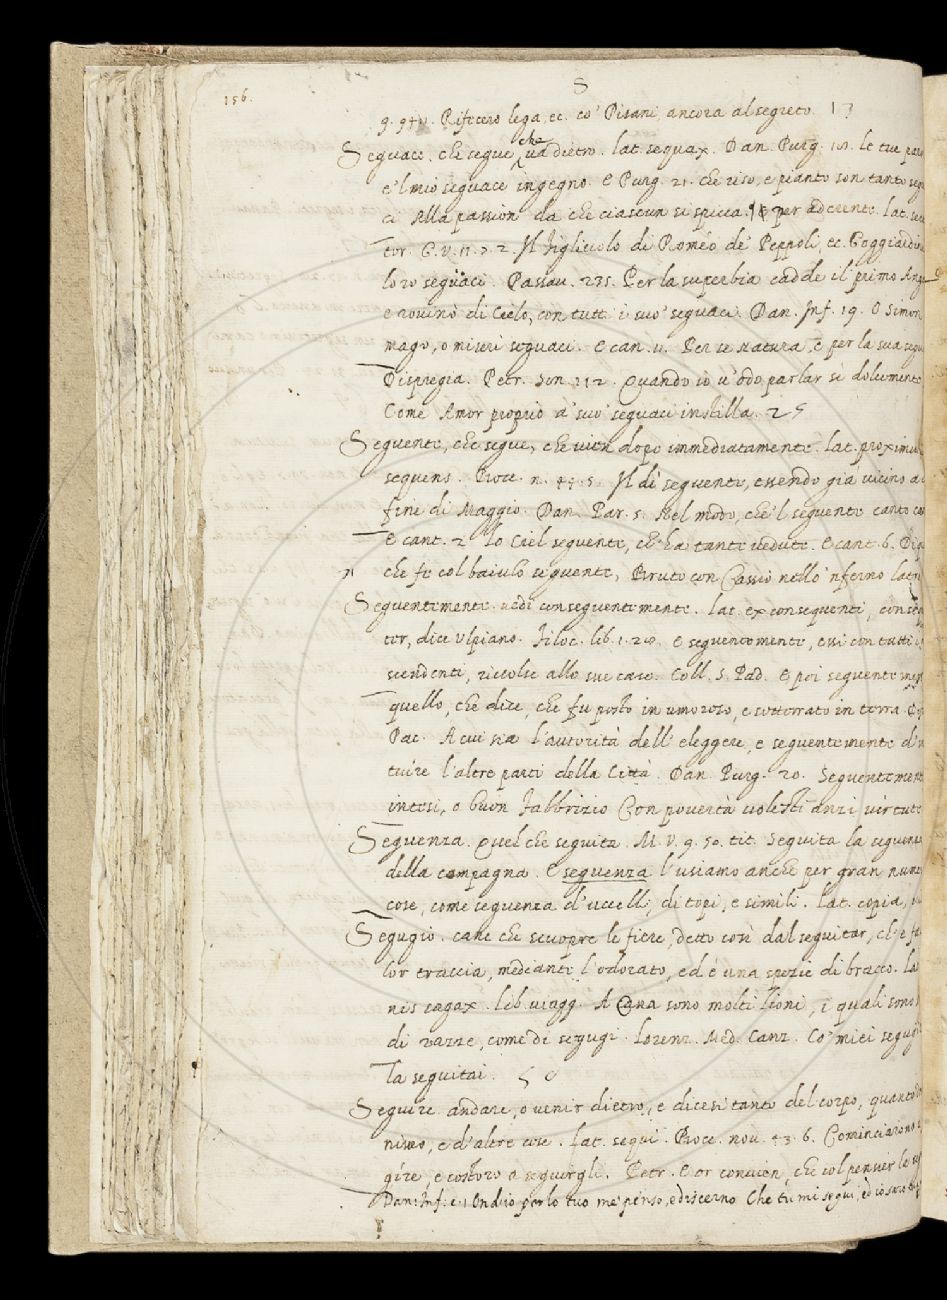 156.
S
9. 94 v. Rifecero lega, ec. co' Pisani ancora al segreto. 13
Seguace. che segue, che va dietro. lat. sequax. Dan. Purg. 18. le tue
e 'l mio seguace ingegno. E Purg. 21. che riso, e pianto son tanto
ci Alla passion da che ciascun si spicca. per aderente. lat.
tor. G. V. 11. 7. 2. Il figliuolo di Roméo de' Peppoli, ec.
loro seguaci. Passav. 235. Per la superbia cadde il primo
e rovinò di Cielo, con tutti i suo' seguaci. Dan. Inf. 19. O Simon
mago, o miseri seguaci. E can. 11. Per se Natura, e per la sua
Dispregia. Petr. Son. 112. Quando io v' odo parlar sì dolcemente
Come Amor proprio a' suo' seguaci instilla. 25
Seguente, che segue, che vien dopo immediatamente. lat. proximus
sequens. Bocc. n. 44. 5. Il dì seguente, essendo già vicino
fine di Maggio. Dan. Par. 5. Nel modo, che 'l seguente canto
E cant. 2. Lo Ciel seguente, ch' ha tante vedute. E cant. 6.
che fe col baiulo seguente, Bruto con Cassio nello 'nferno
Seguentemente. vedi conseguentemente. lat. ex consequenti,
ter, dice Ulpiano. Filoc. lib. 1. 28. E seguentemente, essi con tutti
scendenti, riccolse allo sue case. Coll. S. Pad. E poi
quello, che dice, che fu posto in umoroso, e sotterrato in terra.
Pac. A cui sia l'autorità dell' eleggere, e seguentemente
tuire l'altre parti della Città. Dan. Purg. 20. Seguentemente
intesi, o buon Fabbrizio Con povertà volesti anzi virtute
Seguenza. Quel che seguita. M. V. 9. 50. tit. Seguita la
della compagna. E seguenza l'usiamo anche per gran
cose, come seguenza d'uccelli, di topi, e simili. lat. copia,
Segugio. cane che scuopre le fiere, detto così dal seguitar,
lor traccia, mediante l'odorato, ed è una spezie di bracco.
nis sagax. lib. viagg. A Cana sono molti lioni, i quali sono
di razze, come di segugi. Lorenz. Med. Canz. Co' miei
la seguitai. 50
Seguire. andare, o venir dietro, e dicesi tanto del corpo,
nimo, e d'altre cose. lat. sequi. Bocc. nov. 43. 6. Cominciarono
gire, e costoro a seguirgli. Petr. E or convien, che col pensier
Dan. Inf. c. 1. Ond' io per lo tuo me' penso, e discerno Che tu mi segui, ed io sarò